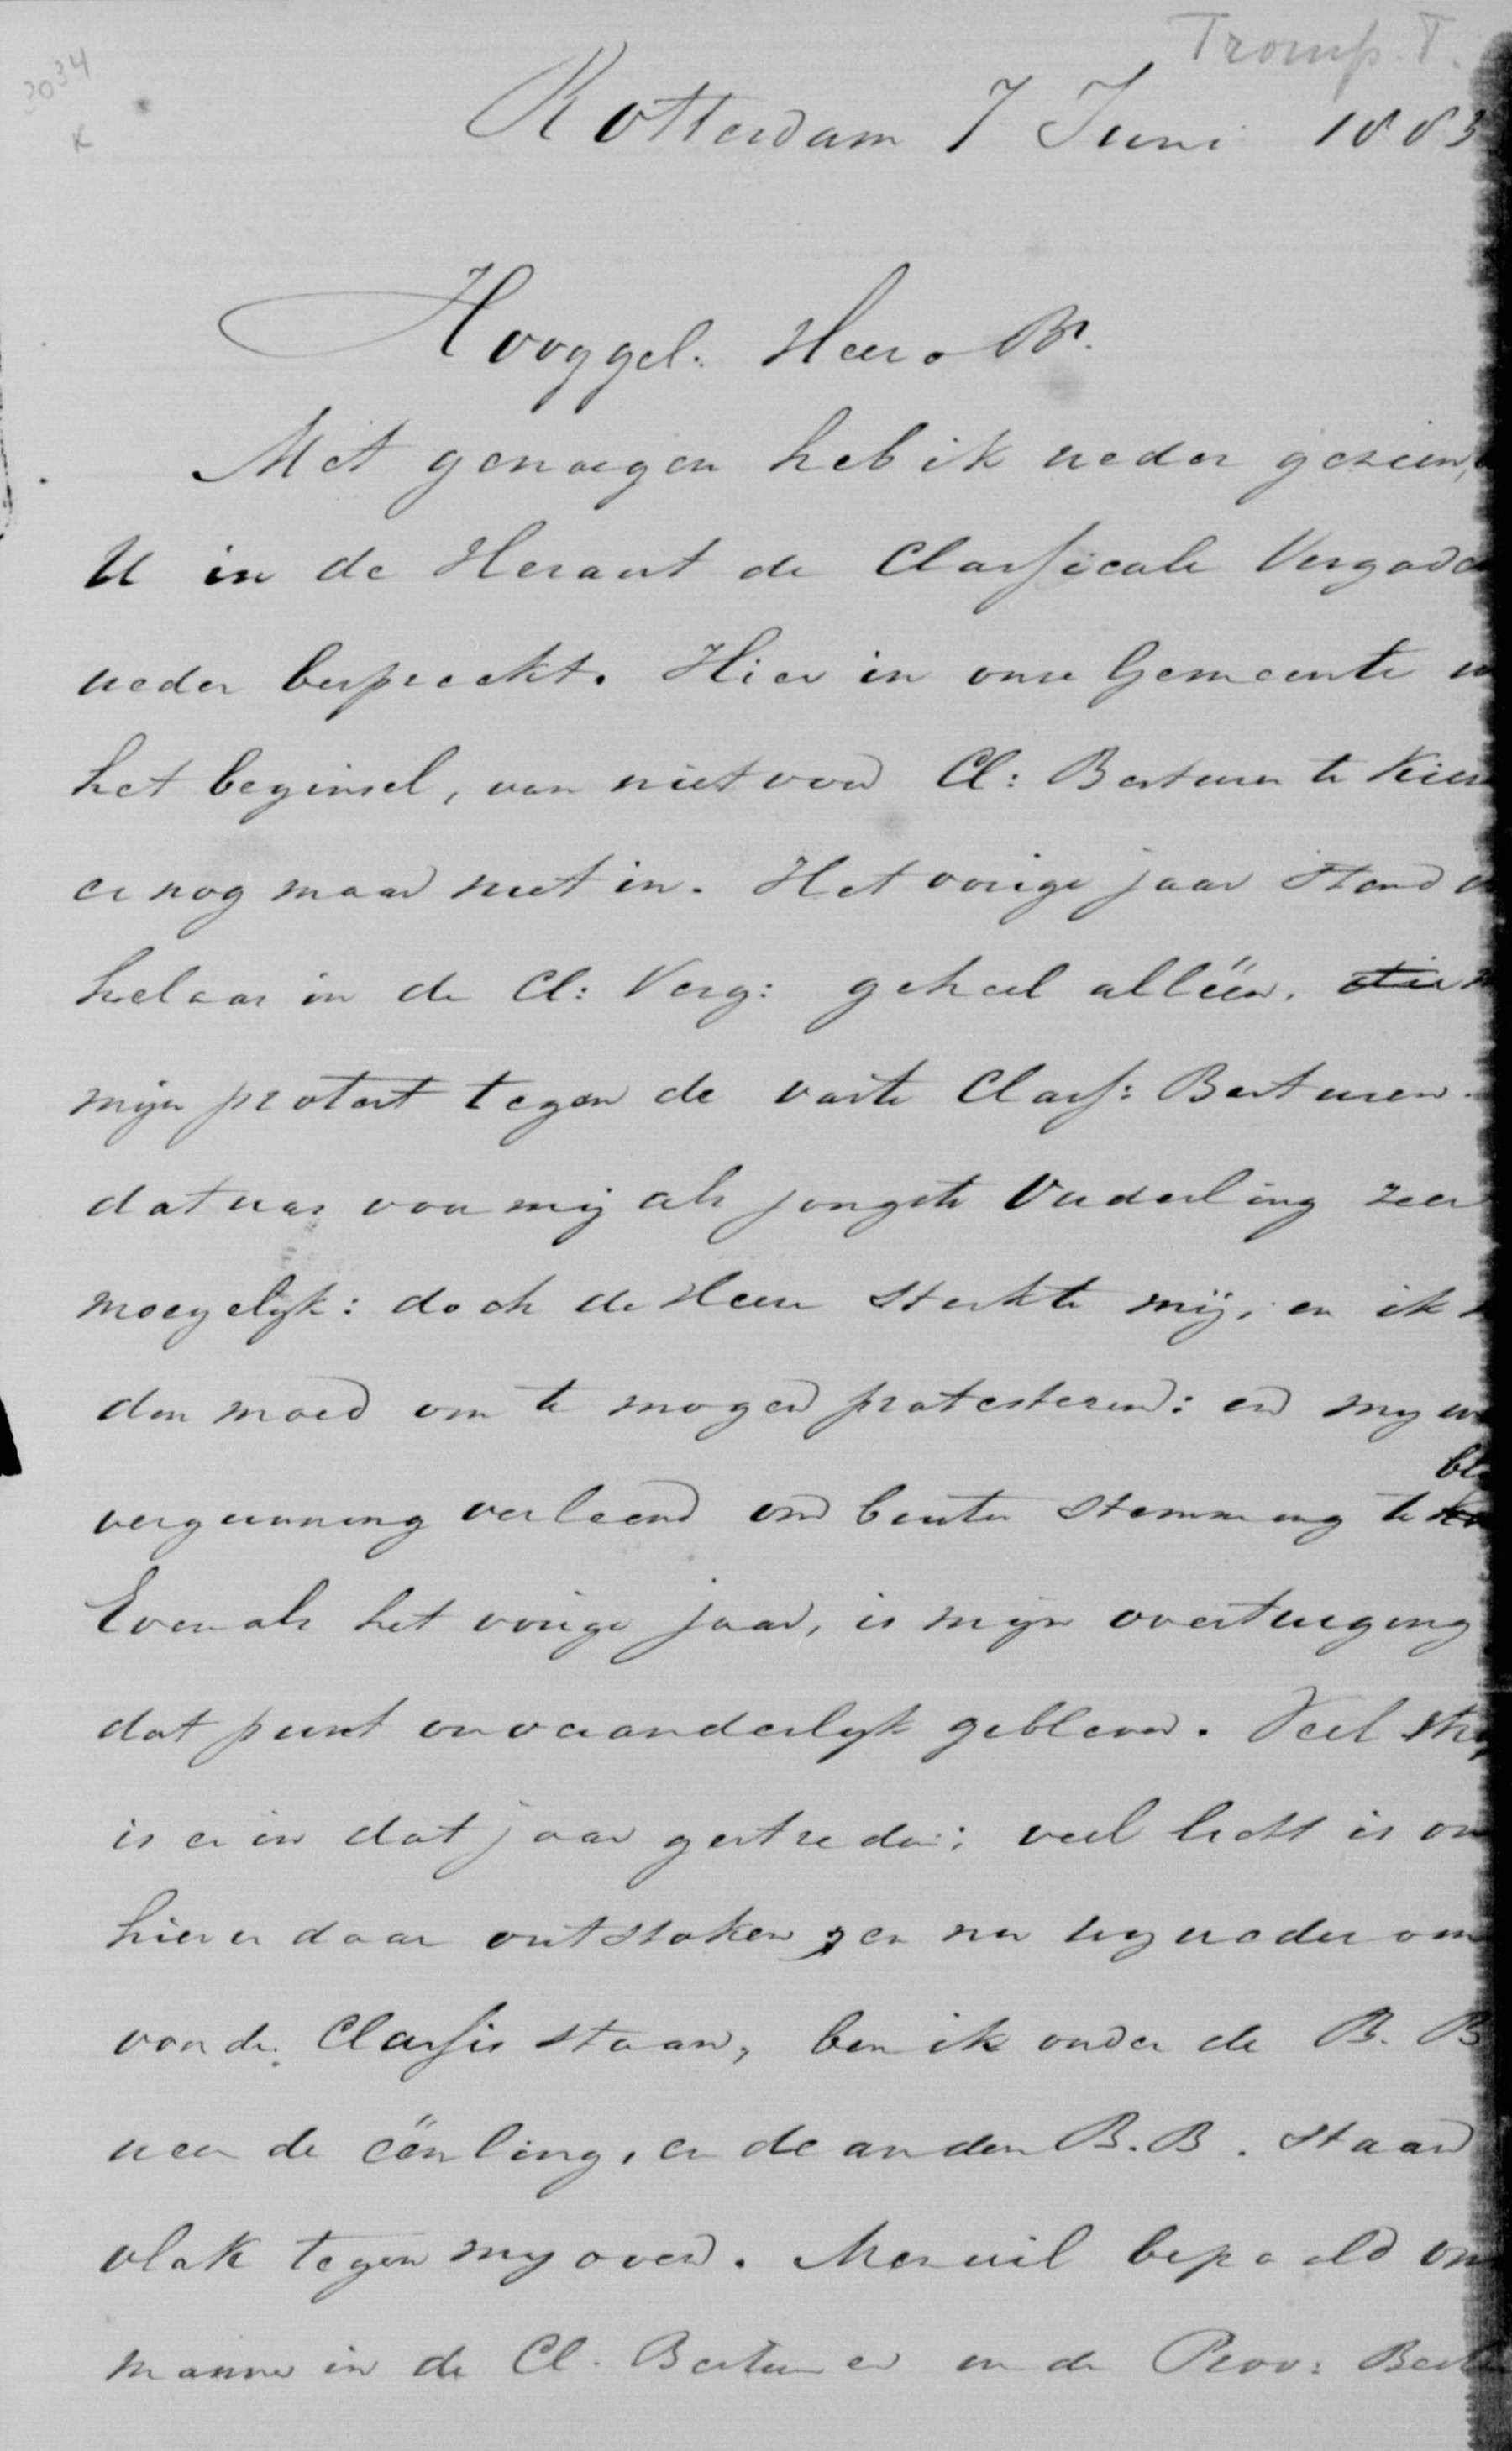 Tromp. T.
3034
K
Rotterdam 7 Juni 1883
Hooggel. Heer & Br.
Met genoegen heb ik weder gezien,
U in de Heraut de Classicale Vergade
weder bespreekt. Hier in onze Gemeente
het beginsel, van niet voor Cl: Besturen te kiese
er nog maar niet in. Het vorige jaar stond
helaas in de Cl: Verg: geheel alléén,
mijn protest tegen de vaste Class: Besturen.
dat was voor mij als jongste Ouderling zeer
moeyelyk: doch de Heere sterkte mij, en ik
den moed om te mogen protesteren: en my
vergunning verleend om buiten stemming te bl
Evenals het vorige jaar, is mijn overtuiging
dat punt onveranderlyk gebleven. Veel
is er in dat jaar gestreden; veel licht is
hier en daar ontstoken, en nu wy weder
voor de Classis staan, ben ik onder de B. B
weer de éénling, en de andere B.B. staan
vlak tegen my over. Men wil bepaald
manne in de Cl. Besturen en de Prov: Best